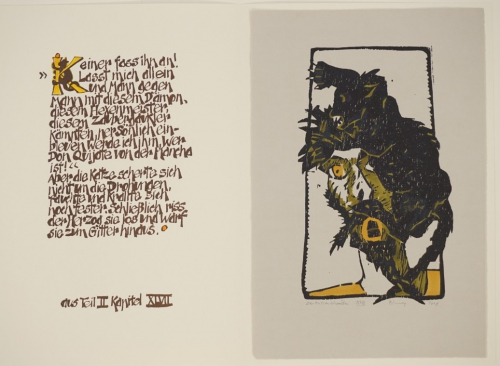 »Keiner fass ihn an!
Lasst mich allein
und Mann gegen
Mann mit diesem Dämon,
diesem Hexenmeister,
diesem Zaubergaukler
kämpfen, persönlich ein-
bleuen werde ich ihm, wer
Don Quijote von der Mancha
ist!«
Aber die Katze scherte sich
nicht um die Drohungen,
fauchte und krallte sich
noch fester. Schließlich riss
der Herzog sie los und warf
sie zum Gitter hinaus.
aus Teil II Kapitel XLVI